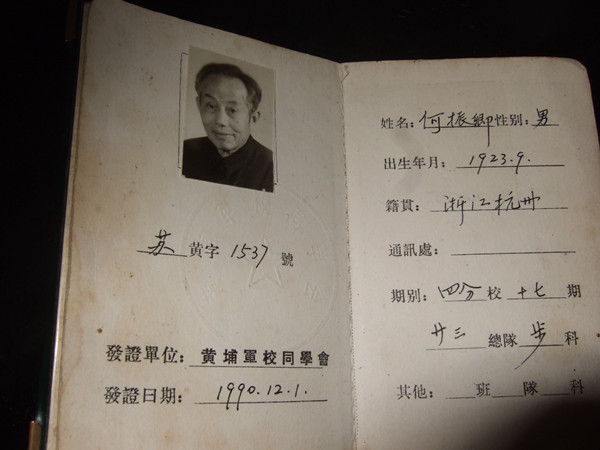 苏黄字1537號
發證單位：黄埔軍校同學會
發證日期：1990.12.1.
姓名：何振卿性别：男
出生年月：1923.9.
籍貫：浙江杭州
通訊處：
期别：四分校十七期
廿三總隊步科
其他：班隊科